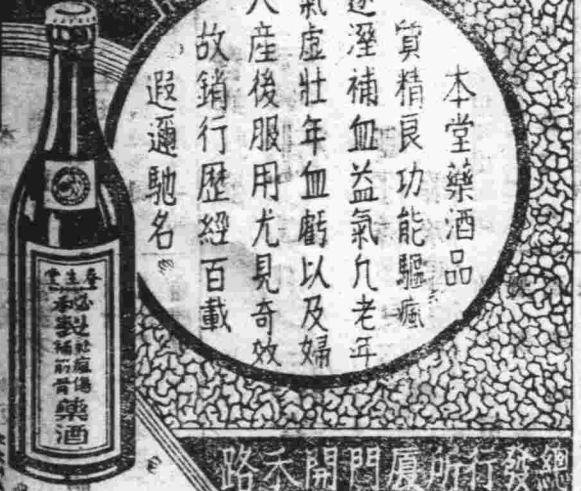 本堂藥酒品
質精良功能驅瘋
逐溼補血益氣凢老年
氣虛壯年血虧以及婦
人產後服用尤見奇效
故銷行歷經百載
遐邇馳名
春生堂
製
補筋骨
藥酒
總發行所廈門開禾路